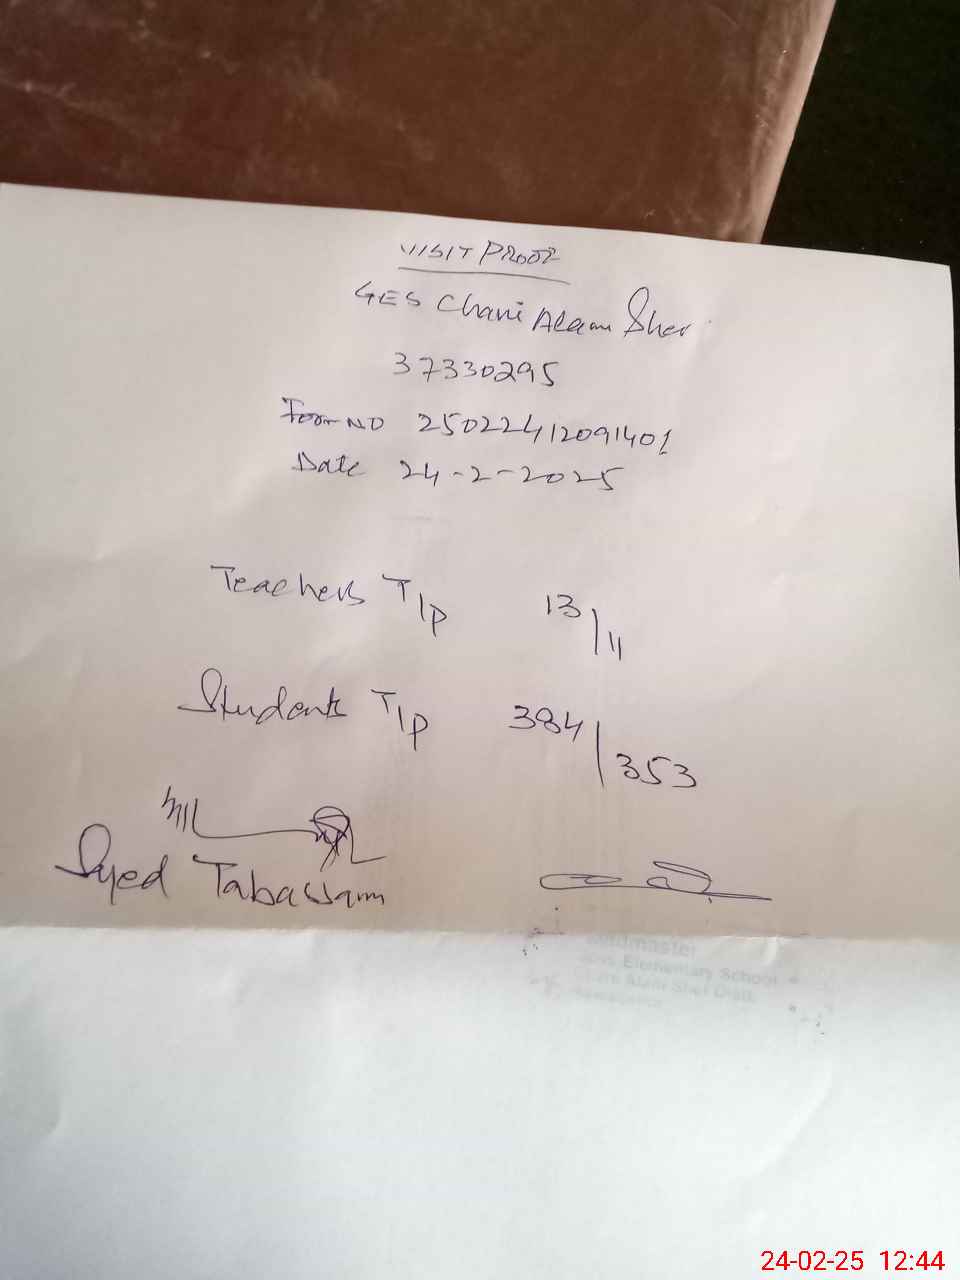 VISIT PROOF
GES Chani Alam Sher
37330295
Form NO 25022412091401
Date 24-2-2025
Teachers T/P 13/11
Students T/P 384/353
Syed Tabassam
Headmaster
Govt. Elementary School
Chani Alam Sher Distt.
24-02-25 12:44